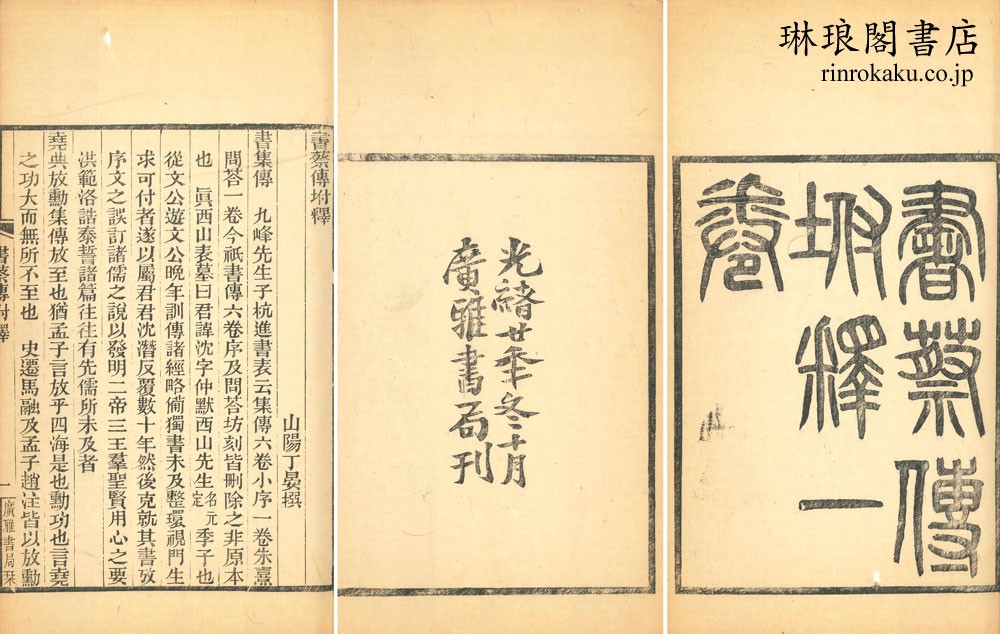 琳琅閣書店
rinrokaku.co.jp
書蔡傳
坿釋一
卷
光緒廿年冬十月
廣雅書局刊
書蔡傳坿釋
山陽丁晏撰
書集傳 九峰先生子杭進書表云集傳六卷小序一卷朱熹
問荅一卷今祇書傳六卷序及問荅坊刻皆刪除之非原本
也 眞西山表墓曰君諱沈字仲默西山先生名元定季子也
從文公遊文公晚年訓傳諸經略備獨書未及整環視門生
求可付者遂以屬君君沈潛反覆數十年然後克就其書攷
序文之誤訂諸儒之說以發明二帝三王羣聖賢用心之要
洪範洛誥泰誓諸篇往往有先儒所未及者
堯典放勳集傳放至也猶孟子言放乎四海是也勳功也言堯
之功大而無所不至也 史遷馬融及孟子趙注皆以放勳
書蔡傳坿釋
一
廣雅書局栞